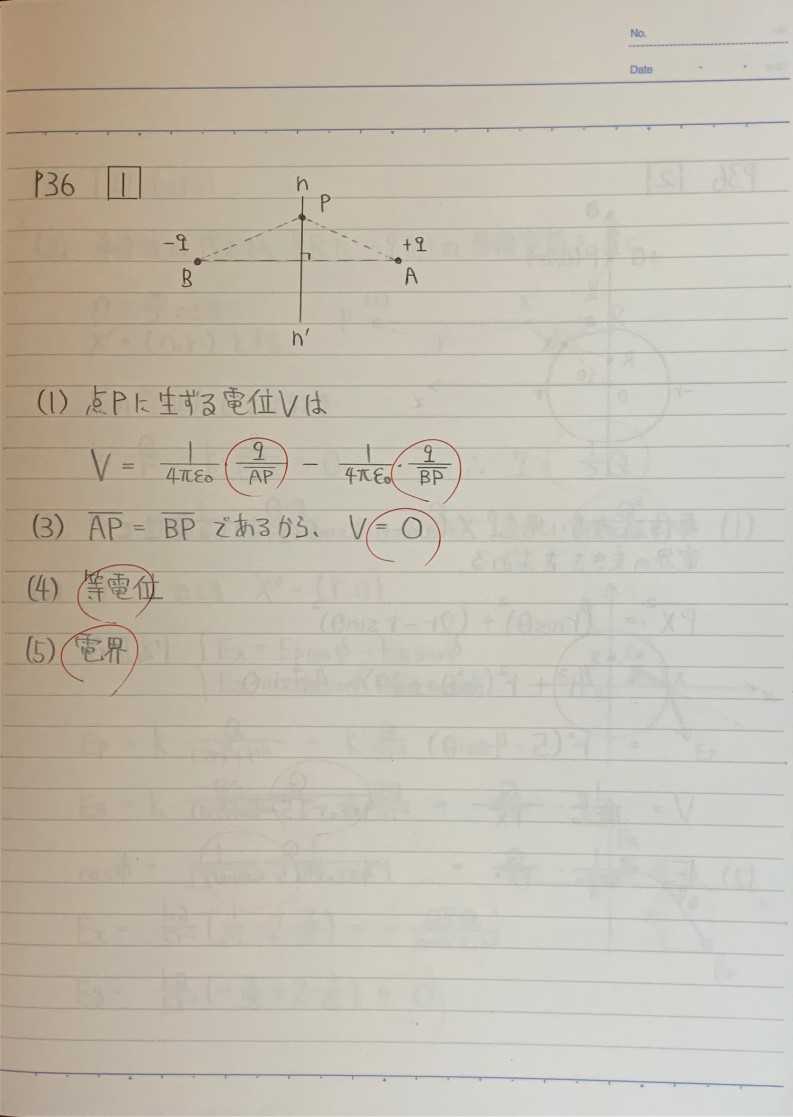 No.
Date
P36 1
n
P
-q
+q
B
A
n'
(1) 点Pに生ずる電位Vは
V = 1/4πε₀ · q/AP − 1/4πε₀ · q/BP
(3) AP = BP であるから、 V = 0
(4) 等電位
(5) 電界